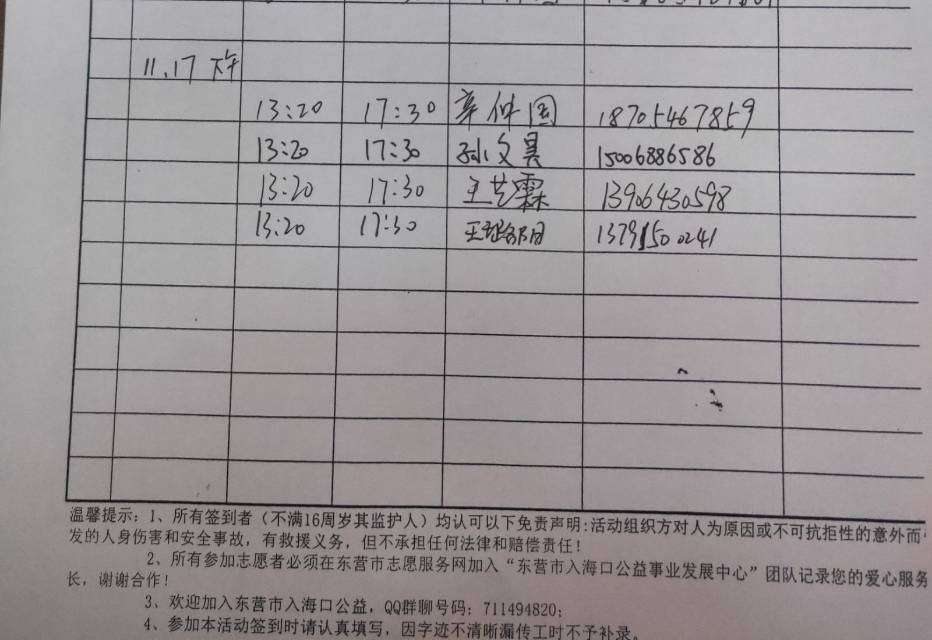 11.17 下午
13:20 17:30 辛仲园 18705467859
13:20 17:30 孙文昊 15006886586
13:20 17:30 王艺霖 13906430598
13:20 17:30 王 13791500241
温馨提示：1、所有签到者（不满16周岁其监护人）均认可以下免责声明：活动组织方对人为原因或不可抗拒性的意外而
发的人身伤害和安全事故，有救援义务，但不承担任何法律和赔偿责任！
2、所有参加志愿者必须在东营市志愿服务网加入“东营市入海口公益事业发展中心”团队记录您的爱心服务
长，谢谢合作！
3、欢迎加入东营市入海口公益，QQ群聊号码：711494820；
4、参加本活动签到时请认真填写，因字迹不清晰漏传工时不予补录。